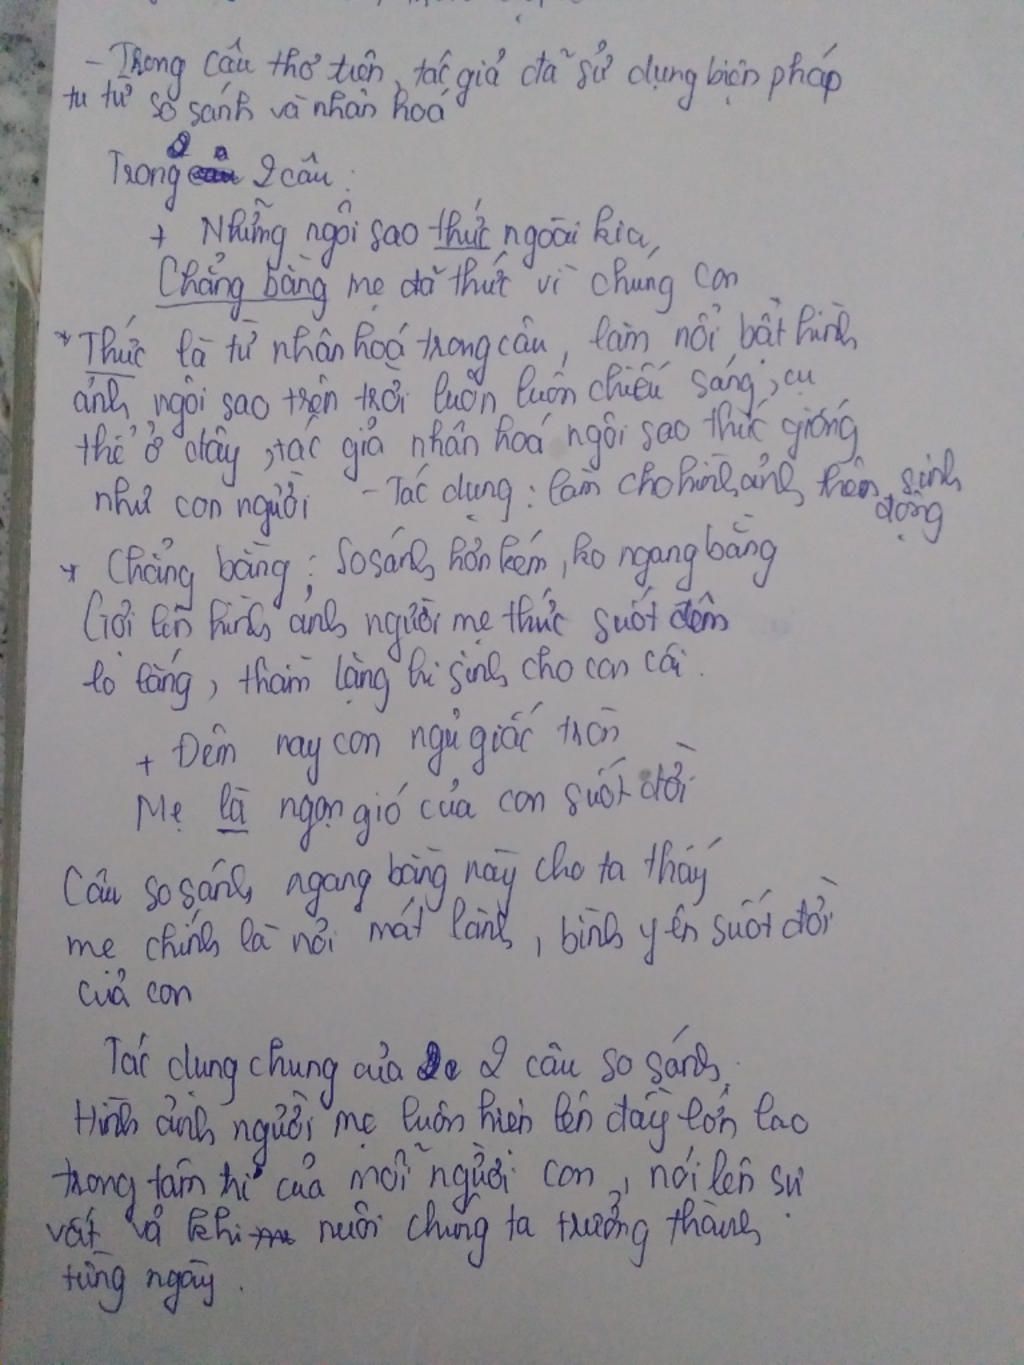 - Trong câu thơ trên, tác giả đã sử dụng biện pháp
tu từ so sánh và nhân hoá
Trong 2 câu :
+ Những ngôi sao thức ngoài kia,
Chẳng bằng mẹ đã thức vì chúng con
* Thức là từ nhân hoá trong câu, làm nổi bật hình
ảnh ngôi sao trên trời luôn luôn chiếu sáng, cụ
thể ở đây, tác giả nhân hoá ngôi sao thức giống
như con người - Tác dụng : làm cho hình ảnh thêm sinh
động
* Chẳng bằng : So sánh hơn kém, ko ngang bằng
Gợi lên hình ảnh người mẹ thức suốt đêm
lo lắng, thầm lặng hi sinh cho con cái.
+ Đêm nay con ngủ giấc tròn
Mẹ là ngọn gió của con suốt đời
Câu so sánh ngang bằng này cho ta thấy
mẹ chính là nơi mát lành, bình yên suốt đời
của con
Tác dụng chung của 2 câu so sánh:
Hình ảnh người mẹ luôn hiện lên đầy lớn lao
trong tâm trí của mỗi người con, nói lên sự
vất vả khi nuôi chúng ta trưởng thành
từng ngày.